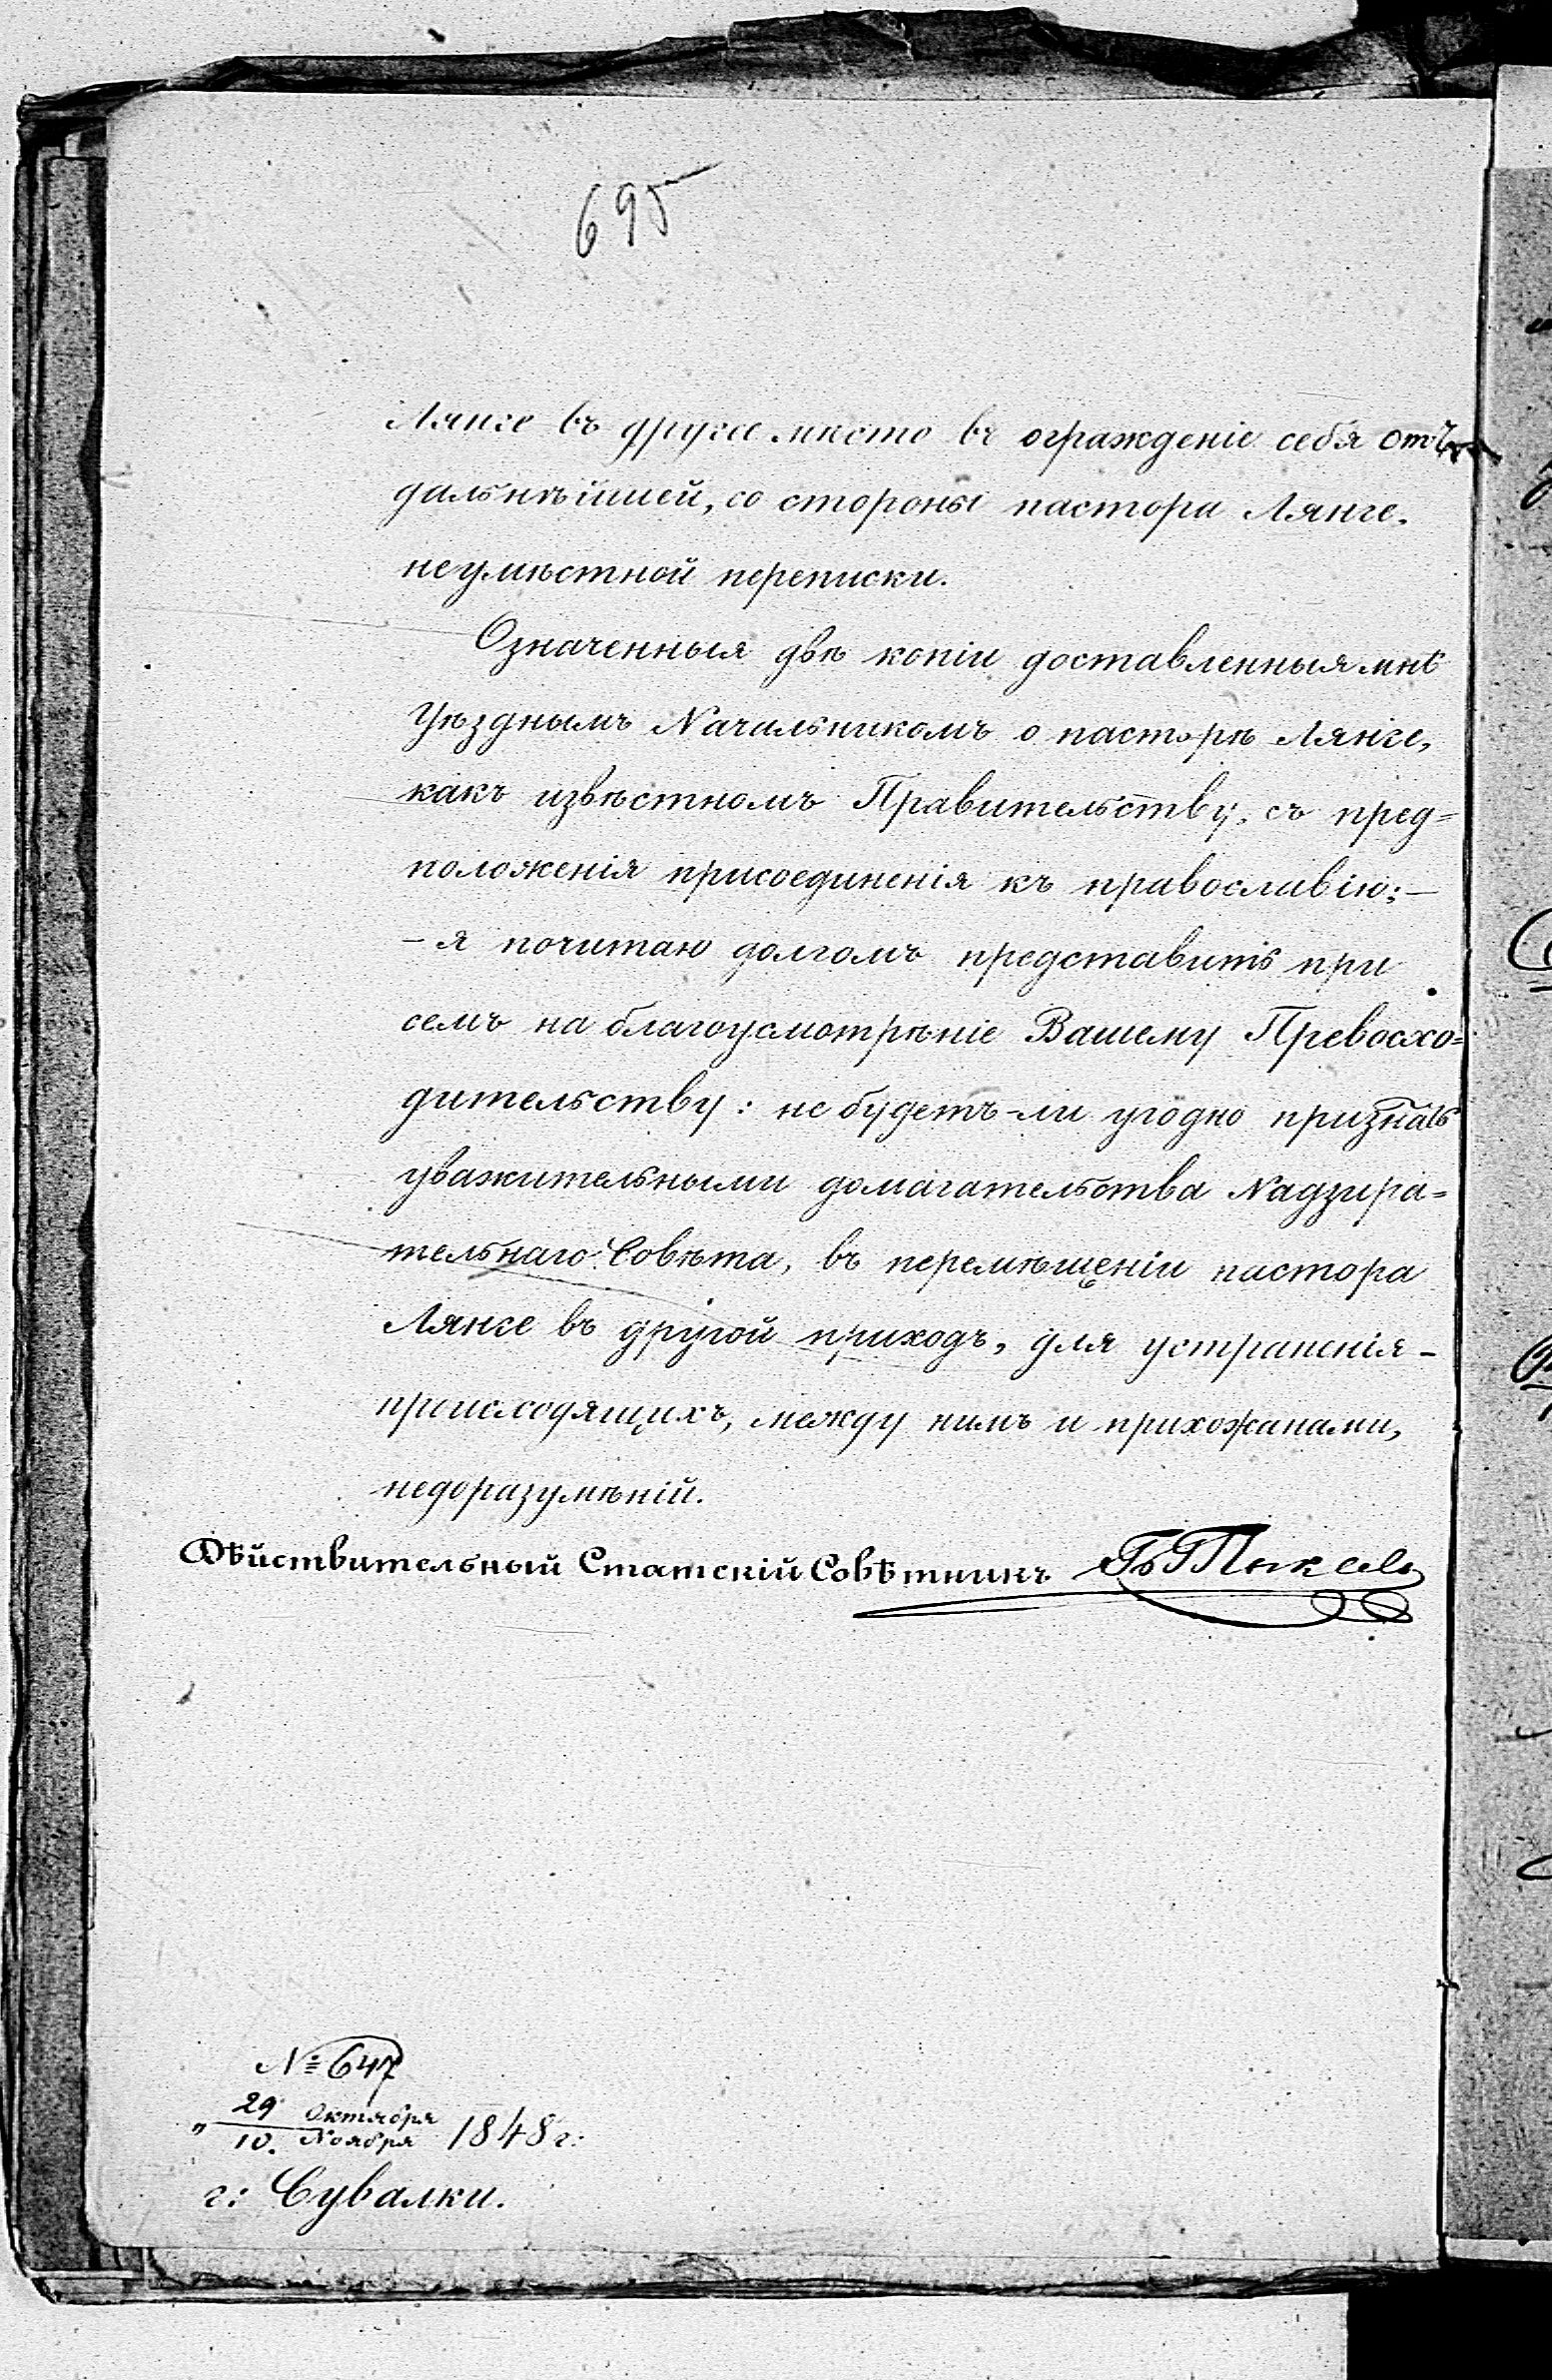 695
Лянге въ другое мѣсто въ огражденіе себя отъ
дальнѣйшей, со стороны пастора Лянге.
неумѣстной переписки.
Означенныя двѣ копіи доставленныя мнѣ
Уѣзднымъ Начальникомъ о пасторѣ Лянге,
какъ извѣстномъ Правительству, съ пред=
положенія присоединенія къ православію;—
— я почитаю долгомъ представить при
семъ на благоусмотрѣніе Вашему Превосхо=
дительству: не будетъ-ли угодно признать
уважительными домагательства Надзира=
тельнаго Совѣта, въ перемѣщеніи пастора
Лянге въ другой приходъ, для устраненія -
происходящихъ, между нимъ и прихожанами,
недоразумѣній.
Дѣйствительный Статскій Совѣтникъ
№ 647
" 29 Октября
10. Ноября 1848 г:
г: Сувалки.